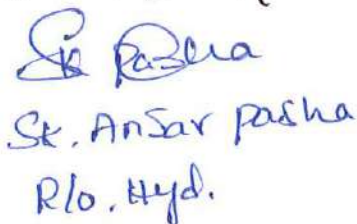 Sk Pasha
Sk. Ansar pasha
R/o. Hyd.